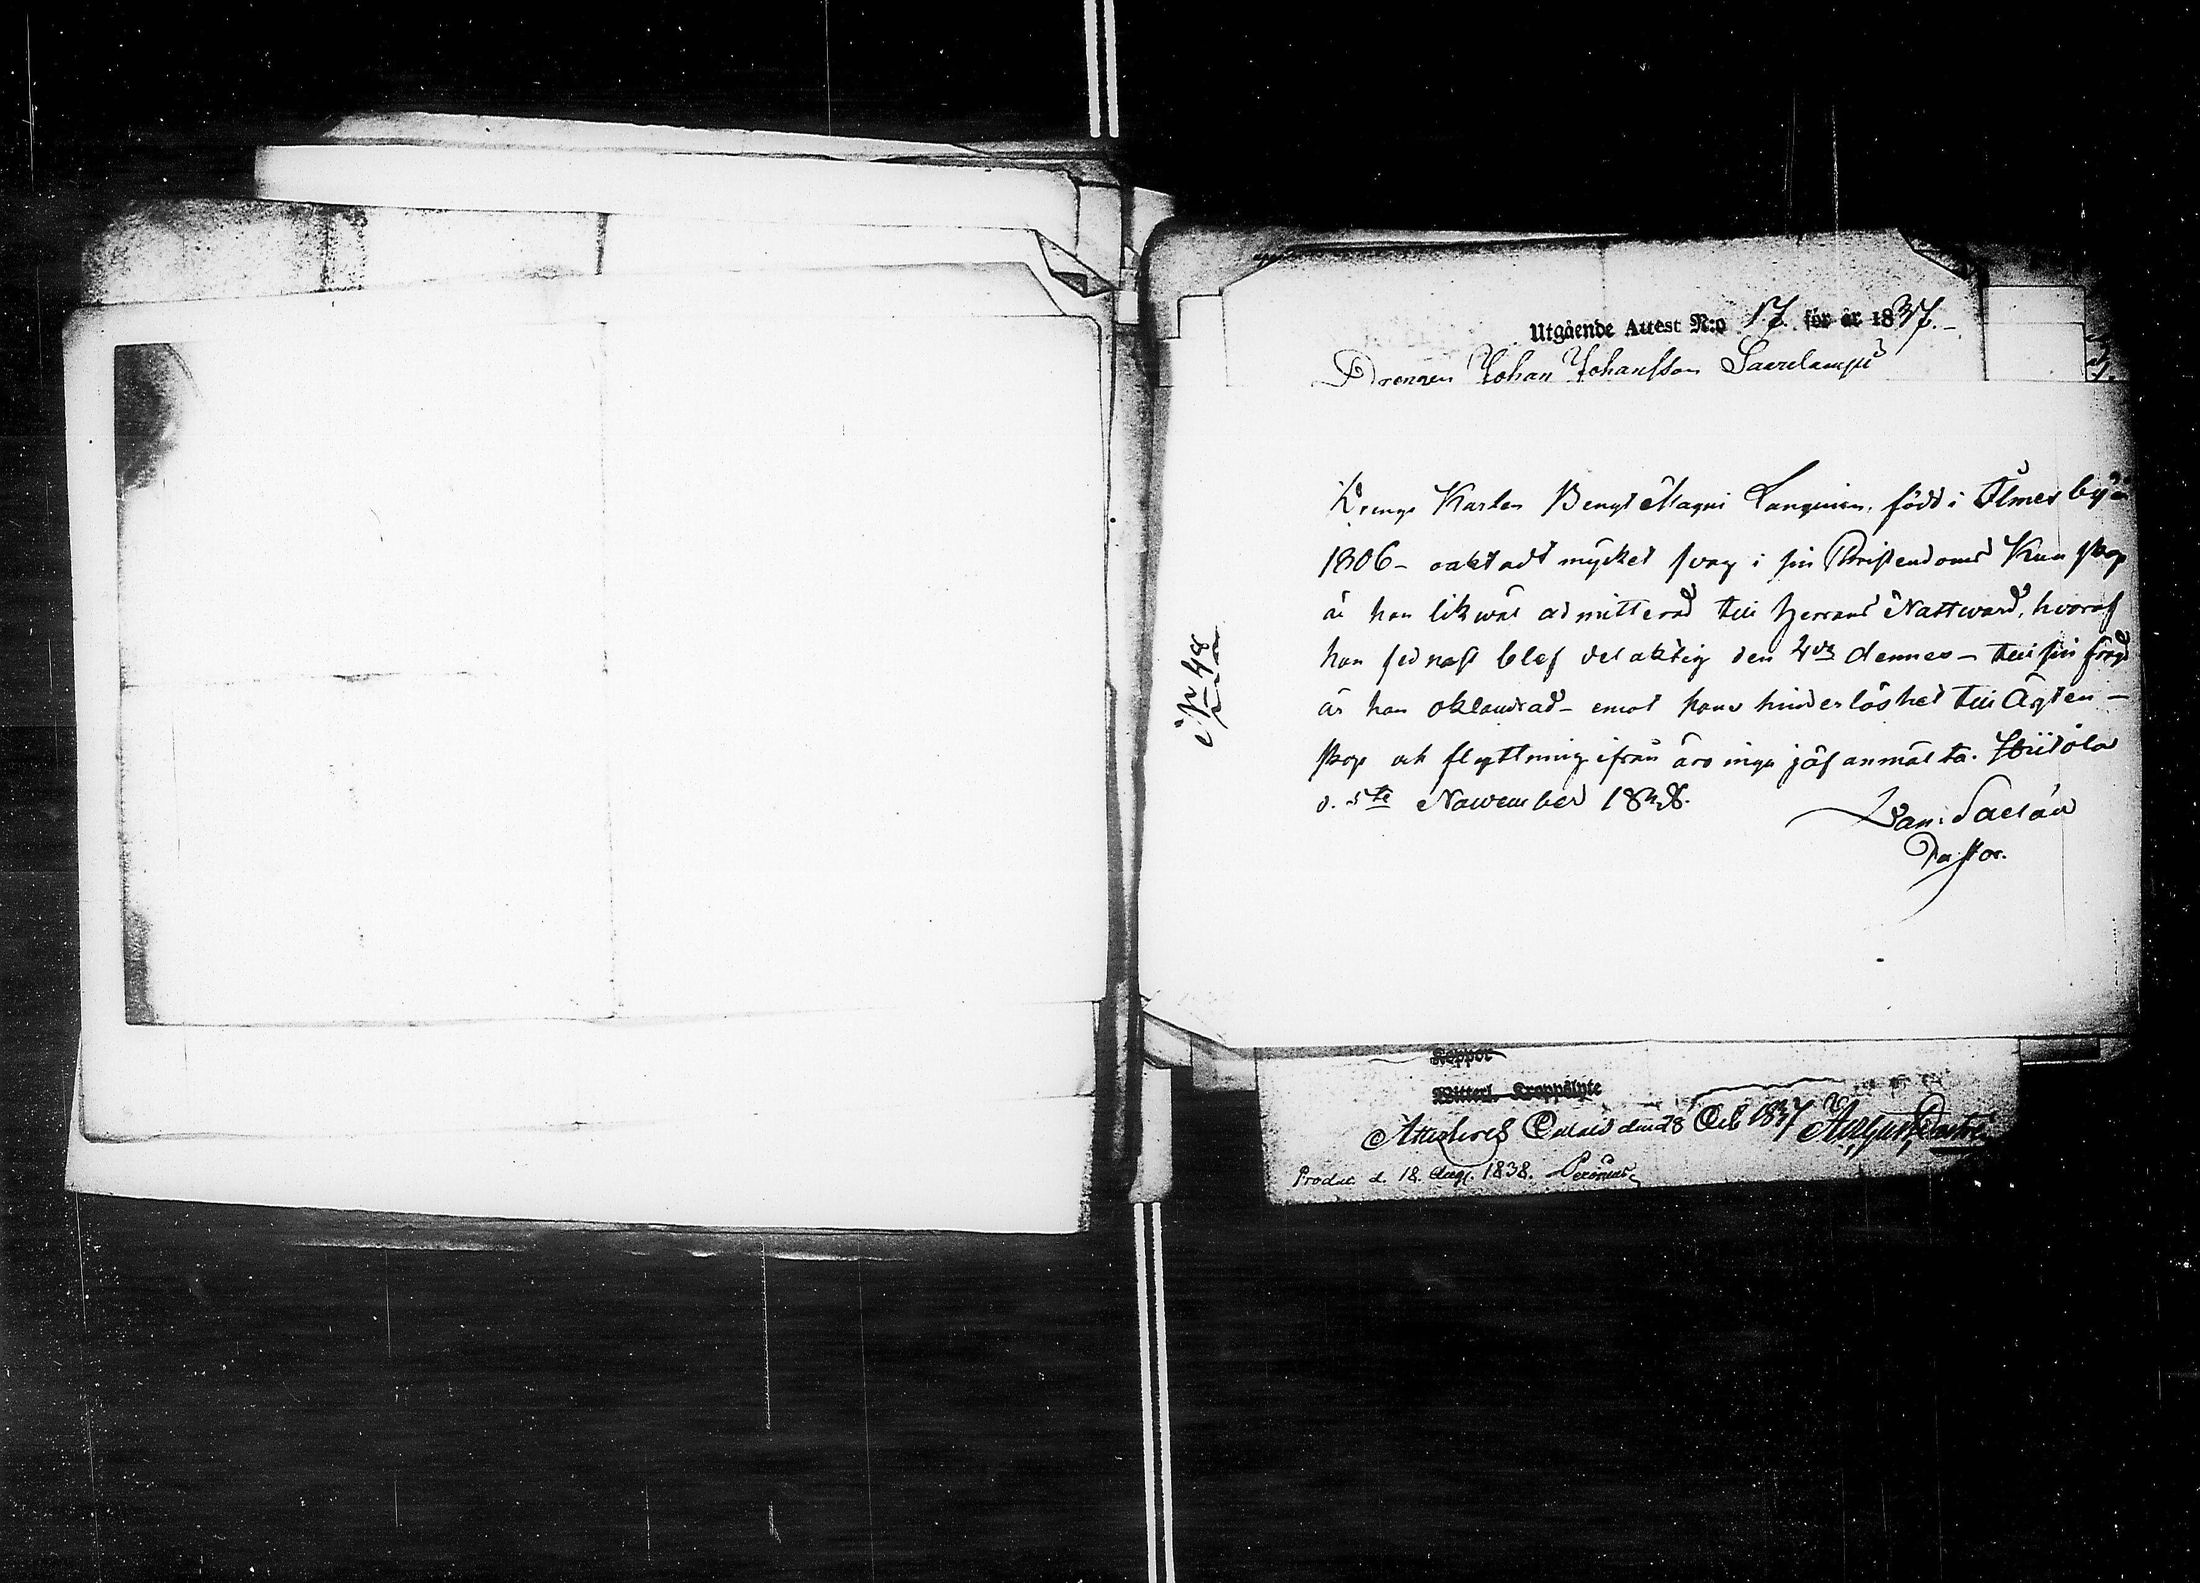 Utgående Attest N:o 17. för år 1837.
Drengen Johan Johansson Saurelampi
Drenge Karlen Bengt Magni Tanquinen, född i Ilmes by å
1806 - oaktadt mycket svag i sin Christendoms Kunskap
är han likwäl admitterad till Herrans Nattward, hvaraf
han sednast blef delaktig den 4de dennes - till sin frägd
är han oklandrad - emot hans hinderlöshet till Ägten-
skap och flyttning ifrån äro inga jäf anmälta. Hiitola
d. 5te November 1838.
Dan:
Pastor.
N 48
Koppor
Witterl. Kroppslyte
Attesteres den 28 Oct 1837
Produc. d. 18. Aug. 1838.